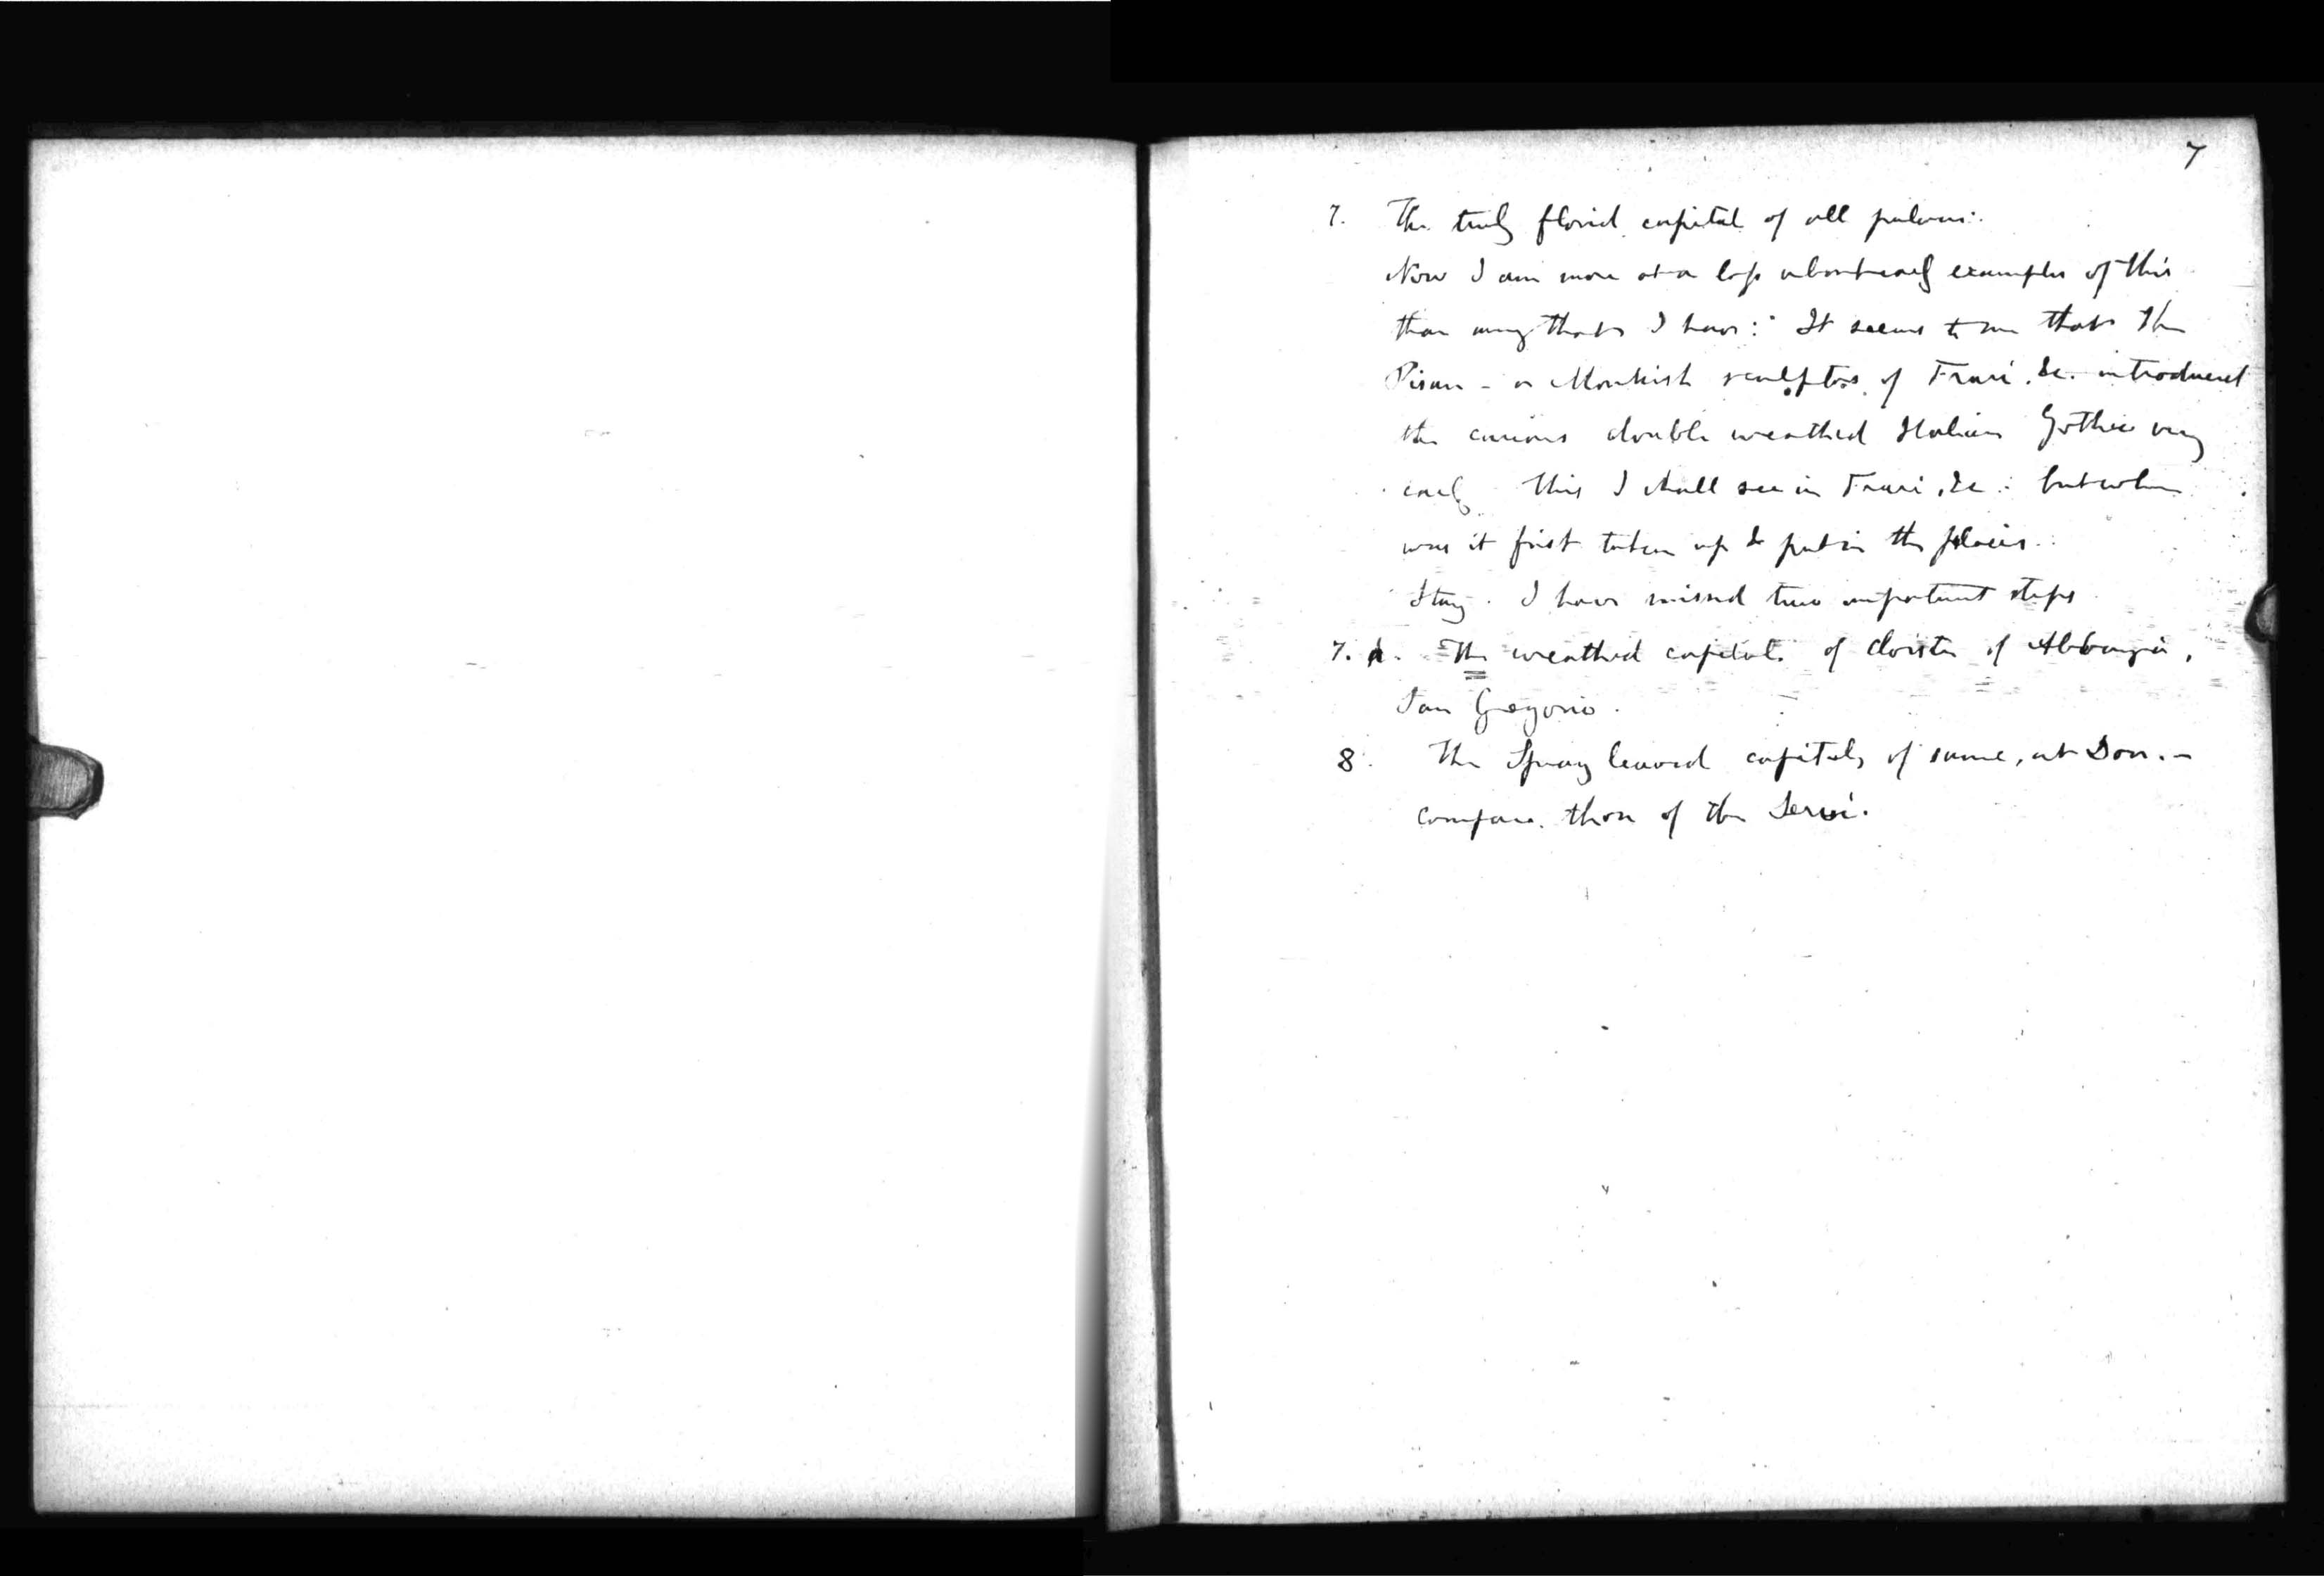 7
7. The truly florid capital of all palaces:
Now I am more at a loss about early examples of this
than any that I have: It seems to me that the
Pisan - or Monkish sculptors of Frari, &c. introduced
the curious double wreathed Italian Gothic very
early This I shall see in Frari, &c: but when
was it first taken up & put in the places.
Stay. I have missed two important steps
7. a. The wreathed capitals of cloister of Abbazia,
San Gregorio.
8. The Spray leaved capitals of same, at Door. -
compare those of the Servi.